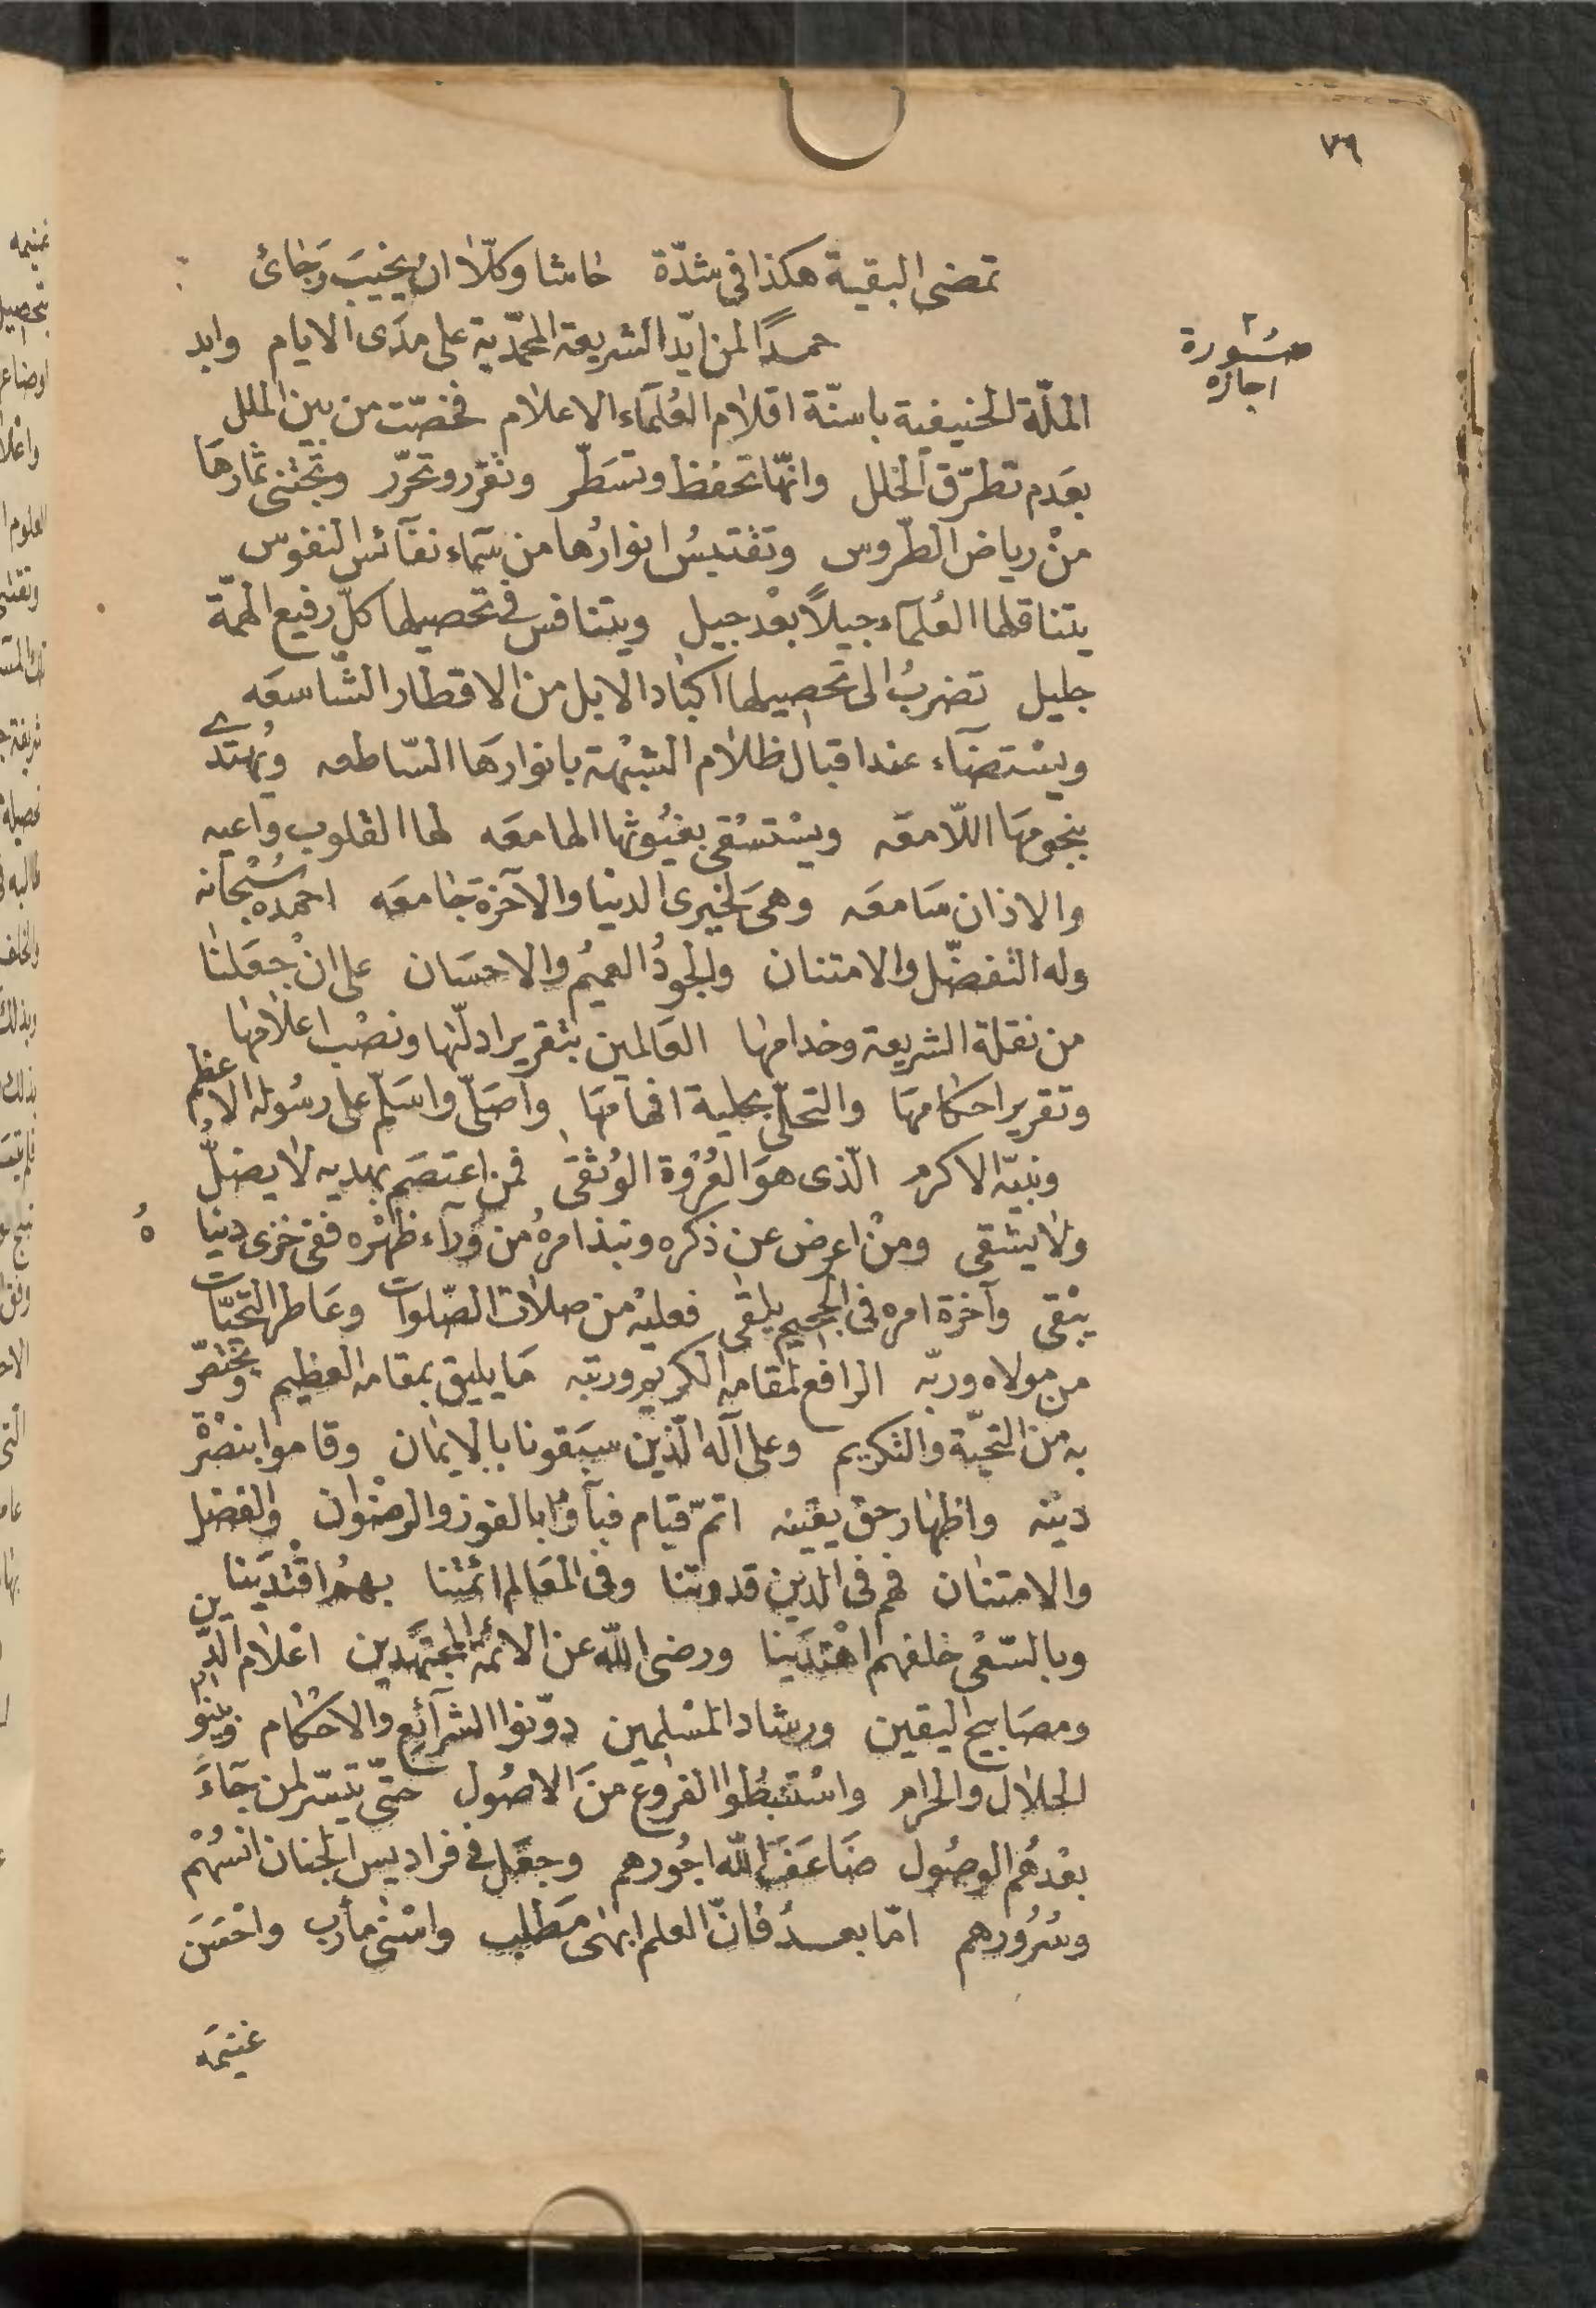 ٧٦
تمضى البقية هكذا فى شدّة حاشا وكلّا ان يخيبَ رَجائ
صُورة
اجازه
حمدًا لمن ايّد الشريعة المحمّدية على مدَى الايام وابد
الملّة الحنيفية باسنّة اقلام العُلمآء الاعلام فخصّت من بين الملل
بعَدم تطرّق الخلل وانّها تحفظ وتسَطّر وتقرّر وتحرّر وتجتنى ثمارهَا
منْ رياض الطّروس وتقتبسُ انوارُها من سَماء نفآئس النفوس
يتناقلها العُلمآء جيلًا بعْد جيل ويتنافس فى تحصيلها كلّ رفيع الهمّة
جليل تضربُ الى تحصيلها اكباد الابل من الاقطار الشّاسعَه
ويسْتضآء عند اقبال ظلام الشبْهة بانوارهَا السّاطعه ويُهتدَى
بنجومهَا اللّامعَه ويسْتسْقى بغيُوثها الهامعَه لها القلوب واعيه
والاذان سَامعَه وهىَ لخيرى الدنيا والآخرة جَامعَه احمدهُ سُبْحانه
وله التفضّل والامتنان والجودُ العميمُ والاحسَان على انْ جعَلنا
من نقلة الشريعة وخدامها العَالمين بتقرير ادلّتها ونصْب اعلامها
وتقرير احكامهَا والتحلّى بحلية افهامهَا واُصَلّى واسَلّم على رسُوله الاعظم
ونبيّه الاكرم الّذى هوَ العُرْوة الوُثقىٰ فمن اعتصَم بهديه لا يضلُّ
ولا يشقى ومنْ اعرض عن ذكره ونبذ امرهُ من ورآء ظهْره ففى خزى دنياهُ
يبْقى وآخرة امره فى الجحيم يلقى فعليْه من صلات الصّلوات وعَاطر التحيّات
من مولاه وربّه الرافع لمقامه الكريم ورتبه مَا يليق بمقامه العظيم ويختصّ
به من التحيّة والتكريم وعلى آله الّذين سبَقونا بالايمان وقاموا بنصْر
دينه واظهار حق يقينه اتمّ قيام فبآؤا بالفوز والرضْوان والفضل
والامتنان فهم فى الدّين قدوتنا وفى المعَالم ائمّتنا بهمُ اقْتدَيْنا
وبالسّعْى خلفهم اهْتدَينا ورضى اللّه عن الائمّة المجتهدين اعْلام الدّين
ومصَابيح اليقين ورشاد المسْلمين دوّنوا الشرآئع والاحْكام وبيّنوا
الحلال والحرام واسْتنبُطوا الفرُوع منَ الاصُول حتّى تيسّر لمن جَآءَ
بعْدهُم الوصُول ضَاعَفَ اللّه اجُورهم وجعَل فى فراديس الجنان انسُهُمْ
وسُرُورهم امّا بعد فانّ العلم ابهٰى مَطلب واسْنى مأرب واحْسَنَ
غنيمَه